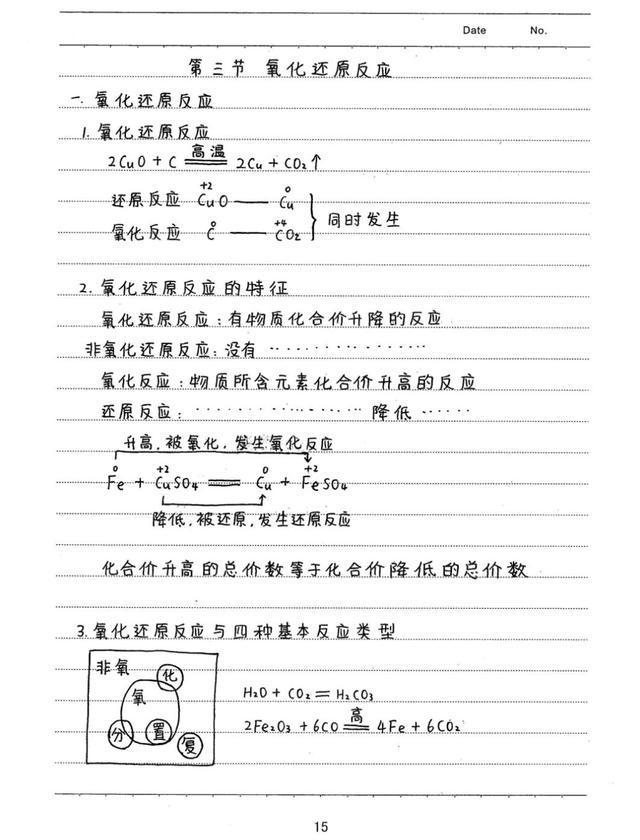 Date No.
第三节 氧化还原反应
一. 氧化还原反应
1. 氧化还原反应
高温
2CuO + C ══ 2Cu + CO₂↑
+2 0
还原反应 CuO — Cu
同时发生
0 +4
氧化反应 C — CO₂
2. 氧化还原反应的特征
氧化还原反应：有物质化合价升降的反应
非氧化还原反应：没有 ··············
氧化反应：物质所含元素化合价升高的反应
还原反应：·············· 降低 ·····
升高，被氧化，发生氧化反应
0 +2 0 +2
Fe + CuSO₄ ══ Cu + FeSO₄
降低，被还原，发生还原反应
化合价升高的总价数等于化合价降低的总价数
3. 氧化还原反应与四种基本反应类型
非氧
化
氧
分
置
复
H₂O + CO₂ = H₂CO₃
高
2Fe₂O₃ + 6CO ══ 4Fe + 6CO₂
15